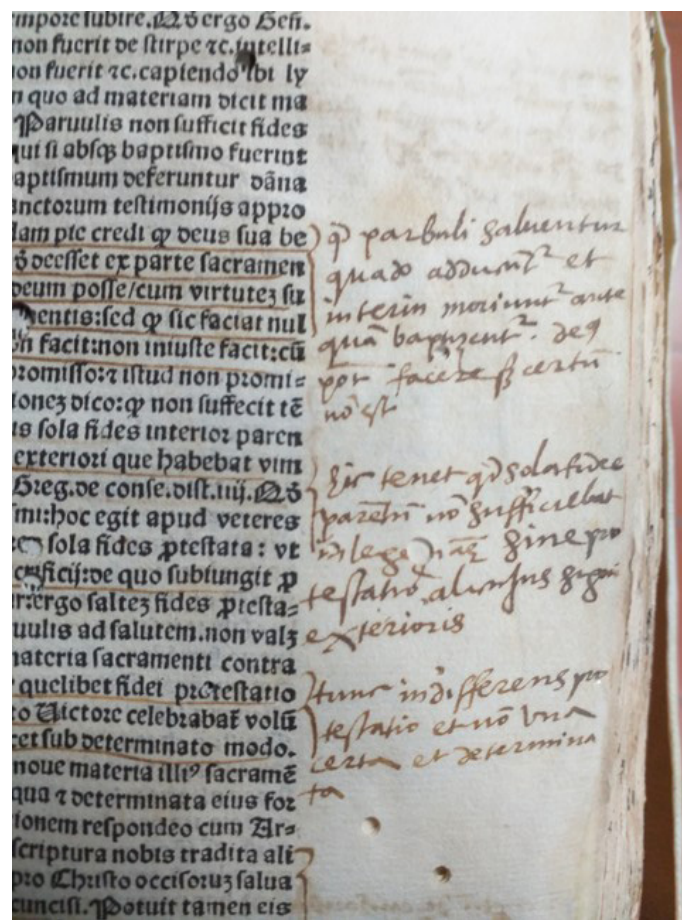 mpore subire. Nō ergo Gen.
non fuerit de stirpe ⁊c. intelli⸗
non fuerit ⁊c. capiendo ibi ly
n quo ad materiam dicit ma
Paruulis non sufficit fides
qui si absqꝫ baptismo fuerint
aptismum deferuntur dāna
anctorum testimonijs appro
dam pte credi ꝙ deus sua be
ō deesset ex parte sacramen
deum posse/cum virtuteꝫ su
mentis: sed ꝙ sic faciat nul
ō facit: non iniuste facit: cū
promisso: ⁊ istud non promi⸗
ioneꝫ dico: ꝙ non suffecit tē
is sola fides interior paren
exteriori que habebat vim
Greg. de conse. dist. iiij. Nō
smi: hoc egit apud veteres
sola fides ꝓtestata: vt
crificij: de quo subiungit ꝓ
r: ergo salteꝫ fides ꝓtesta⸗
ruulis ad salutem. non valꝫ
materia sacramenti contra
quelibet fidei protestatio
to Uictore celebrabat᷑ volū
cet sub determinato modo.
noue materia illiꝰ sacramē
qua ⁊ determinata eius for
ionem respondeo cum Ar⸗
scriptura nobis tradita ali
pro Christo occisoruꝫ salua
cuncisi. Potuit tamen eis
ꝙ parbuli saluentur
quādo adducūt᷑ et
interin moriunt᷑ ante
quā baptizent᷑. deꝰ
pōt facere sꝫ certū
nō est
hic tenet qd sola fides
parētū nō sufficiebat
in lege sine pro
testatiōe alicujus signi
exterioris
tunc indifferens pro
testatio et nō vna
certa et determina
ta